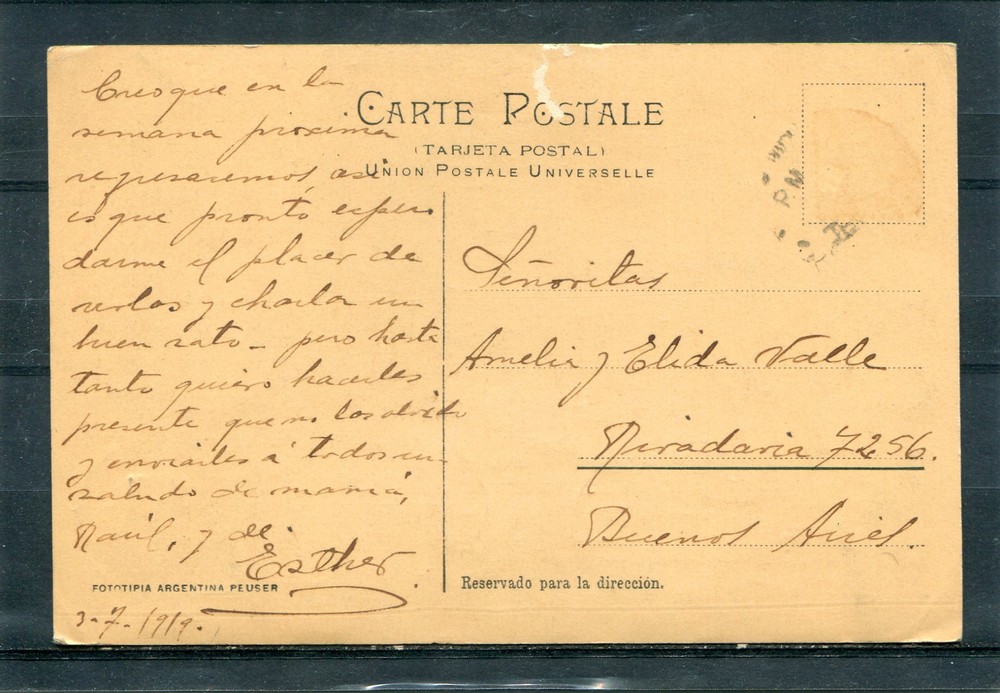 Creo que en la
semana proxima
regresaremos, asi
es que pronto espero
darme el placer de
verlas y charlar un
buen rato - pero hasta
tanto quiero hacerles
presente que no las olvido
y enviarles á todos un
saludo de mamá,
Raúl, y de
Esther.
FOTOTIPIA ARGENTINA PEUSER
3-7-1919.
CARTE POSTALE
(TARJETA POSTAL)
UNION POSTALE UNIVERSELLE
PM
Señoritas
Amelia y Elida Valle
Rivadavia 7256.
Buenos Aires.
Reservado para la dirección.